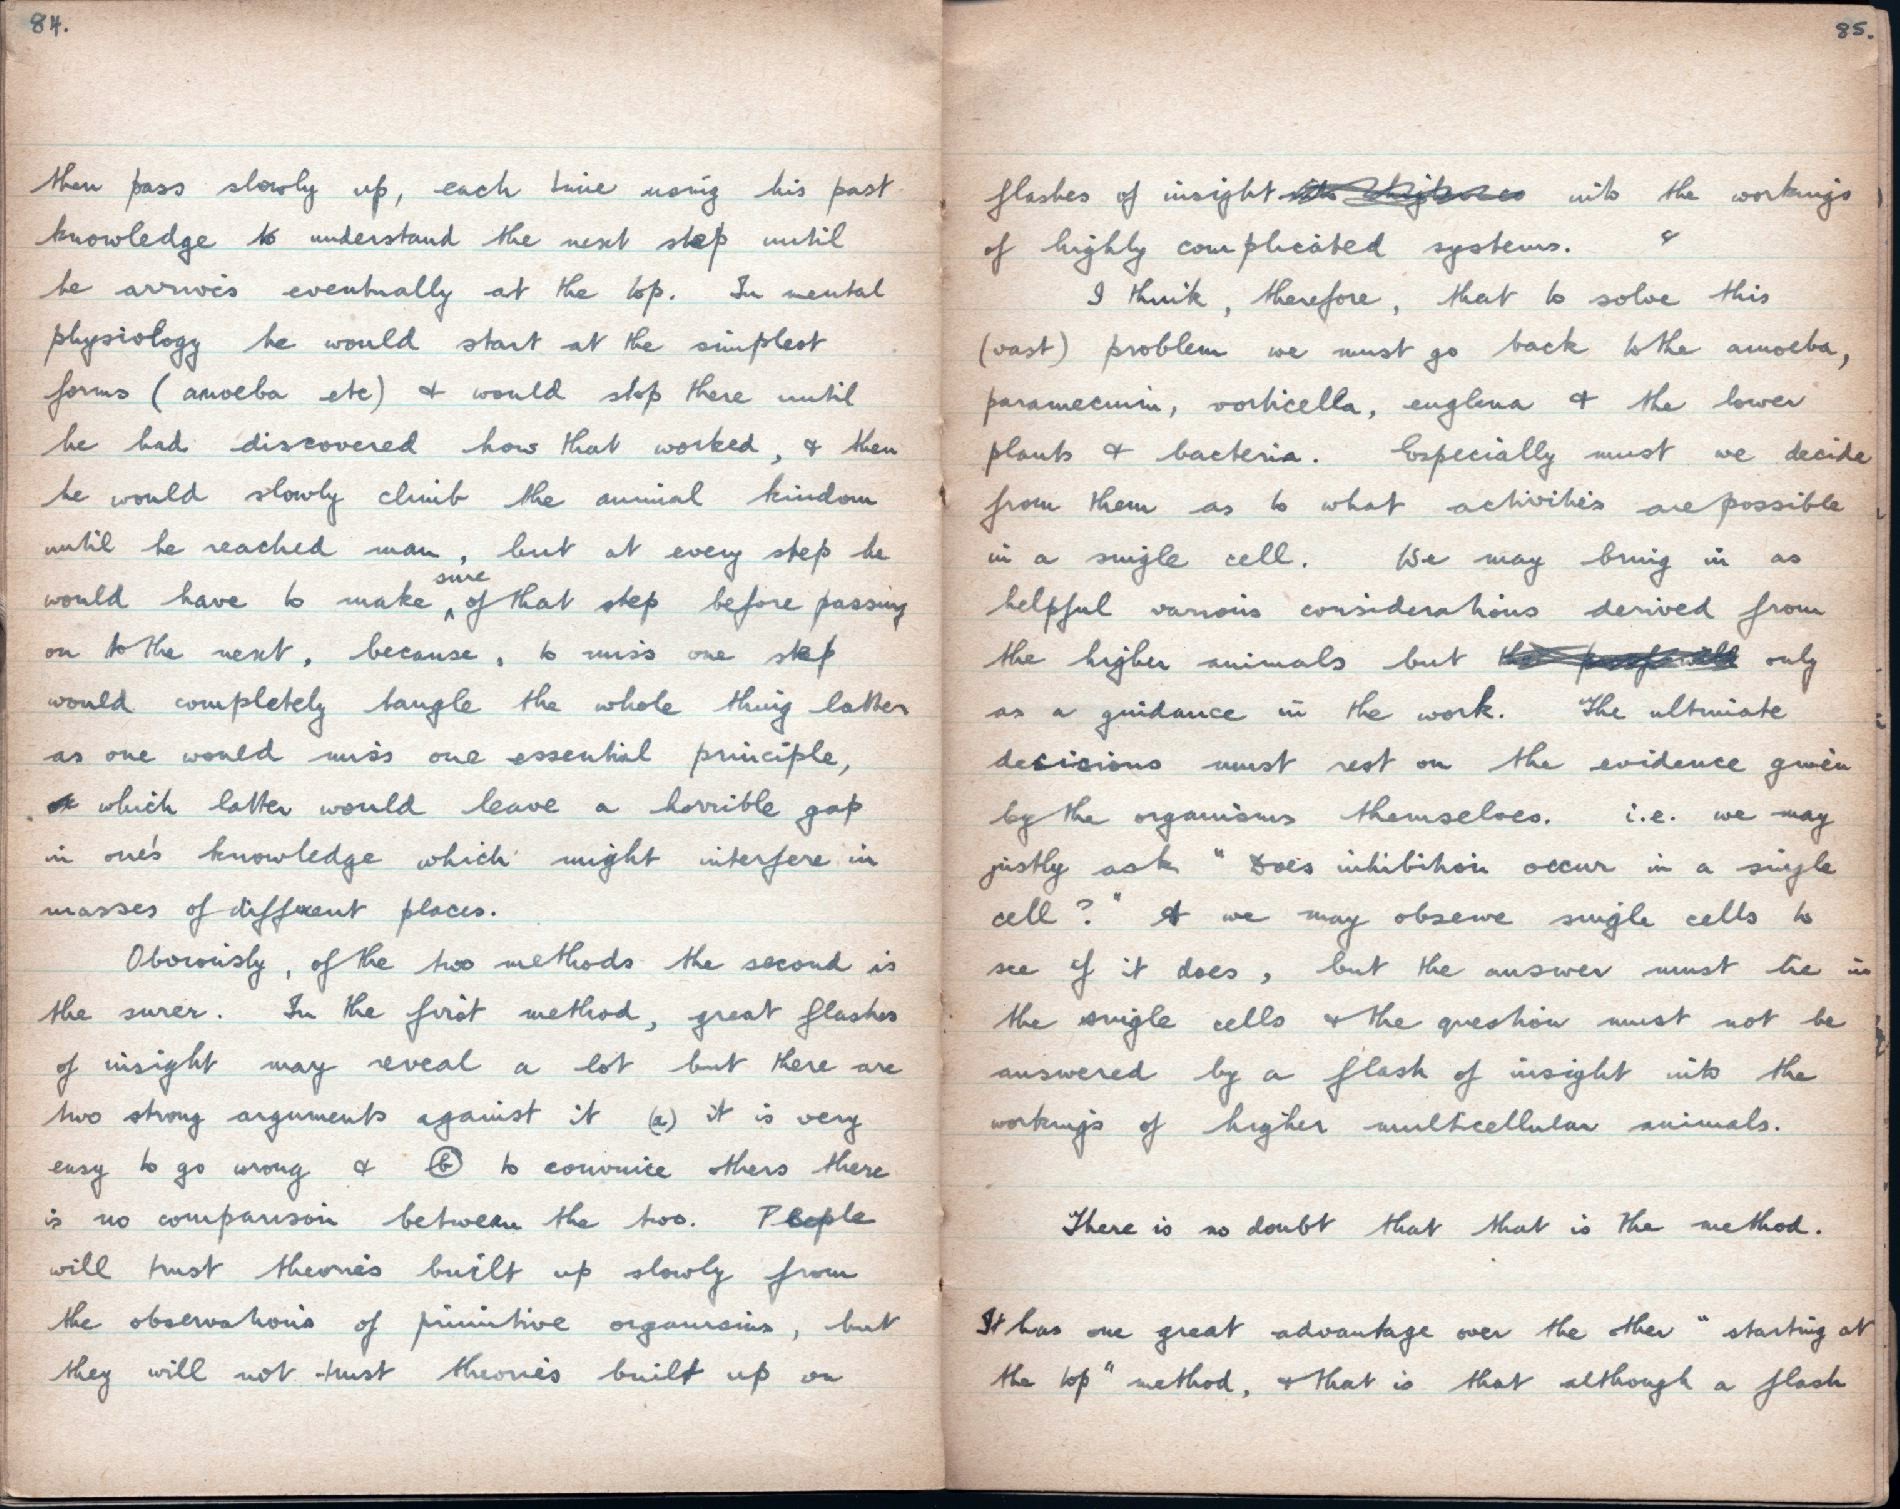 84.
then pass slowly up, each time using his past
knowledge to understand the next step until
he arrives eventually at the top. In mental
physiology he would start at the simplest
forms (amoeba etc) & would stop there until
he had discovered how that worked, & then
he would slowly climb the animal kindom
until he reached man, but at every step he
would have to make sure of that step before passing
on to the next, because, to miss one step
would completely tangle the whole thing latter
as one would miss one essential principle,
which latter would leave a horrible gap
in one's knowledge which might interfere in
masses of different places.
Obviously, of the two methods the second is
the surer. In the first method, great flashes
of insight may reveal a lot but there are
two strong arguments against it (a) it is very
easy to go wrong & (b) to convince others there
is no comparison between the two. People
will trust theories built up slowly from
the observations of primitive organisms, but
they will not trust theories built up on
85.
flashes of insight into the workings
of highly complicated systems. &
I think, therefore, that to solve this
(vast) problem we must go back to the amoeba,
paramecium, vorticella, euglena & the lower
plants & bacteria. Especially must we decide
from them as to what activities are possible
in a single cell. We may bring in as
helpful various considerations derived from
the higher animals but only
as a guidance in the work. The ultimate
decisions must rest on the evidence given
by the organisms themselves. i.e. we may
justly ask "Does inhibition occur in a single
cell?" & we may observe single cells to
see if it does, but the answer must lie in
the single cells & the question must not be
answered by a flash of insight into the
workings of higher multicellular animals.
There is no doubt that that is the method.
It has one great advantage over the other "starting at
the top" method, & that is that although a flash